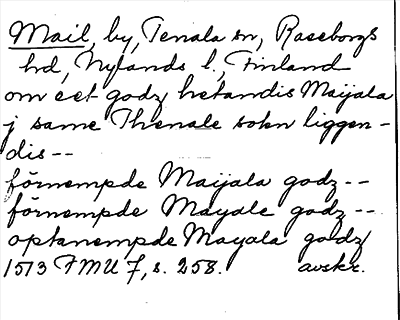 Mail, by, Tenala sn, Raseborgs
hd, Nylands l., Finland
om eet godz hetandis Maijala
j same Thenale sokn liggen-
dis--
förnempde Maijala godz--
förnempde Mayale godz--
optanempde Mayala godz
1513 FMU 7, s. 258. avskr.